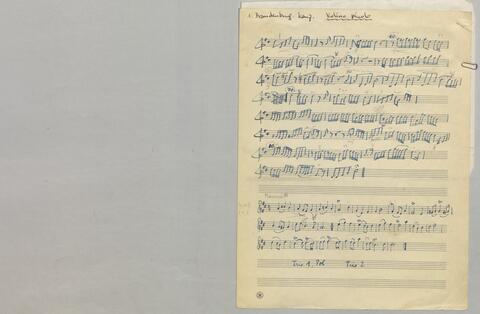 1. Brandenburg. Konz. Violino piccolo
Menuett
Trio 1. Pol Trio 2